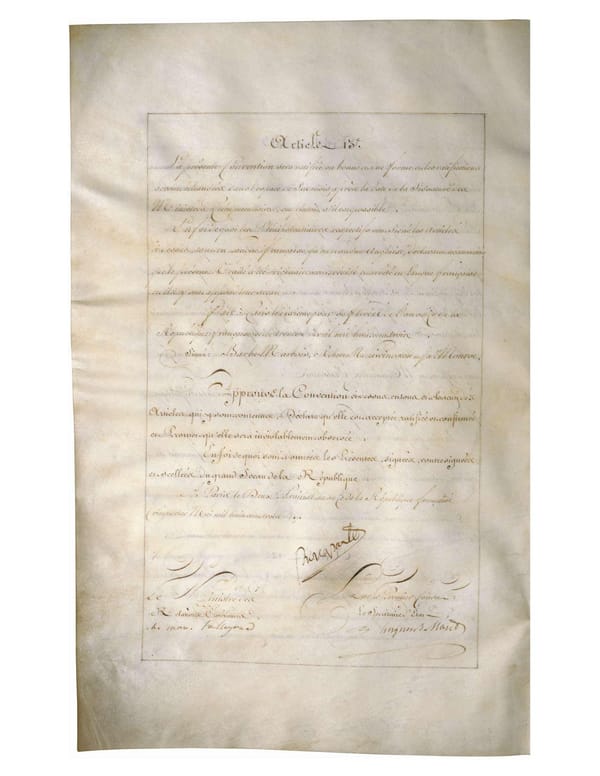 Article 13e.
La présente Convention sera ratifiée en bonne et due forme, et les ratifications
seront échangées dans l'espace de Six mois après la date de la Signature des
Ministres Plénipotentiaires, ou plutôt, s'il est possible.
En foi de quoi les Plénipotentiaires respectifs ont Signé les Articles
ci-dessus, tant en langue française qu'en langue Anglaise, Déclarant néanmoins
que le présent Traité a été originairement rédigé et arrêté en langue française
et ils y ont apposé leur sceau.
Fait à Paris le dixième jour de floréal de l'an onze de la
République française, et le trente Avril mil huit cent trois.
Signé: Barbé Marbois, Robert R. Livingston et Jas. Monroe.
Approuve la Convention ci-dessus, en tous et chacun des
Articles qui y sont contenus, Déclare qu'elle est acceptée ratifiée et confirmée
et Promet qu'elle sera inviolablement observée.
En foi de quoi sont données les Présentes, signées, contresignées
et scellées du grand Sceau de la République
à Paris le Deux Prairial an onze de la République française
vingt deux Mai mil huit cent trois.
Bonaparte
Le Ministre des Le Premier Consul
Relations Extérieures Le Secrétaire d'État
ch. mau. talleyrand Hugues B. Maret